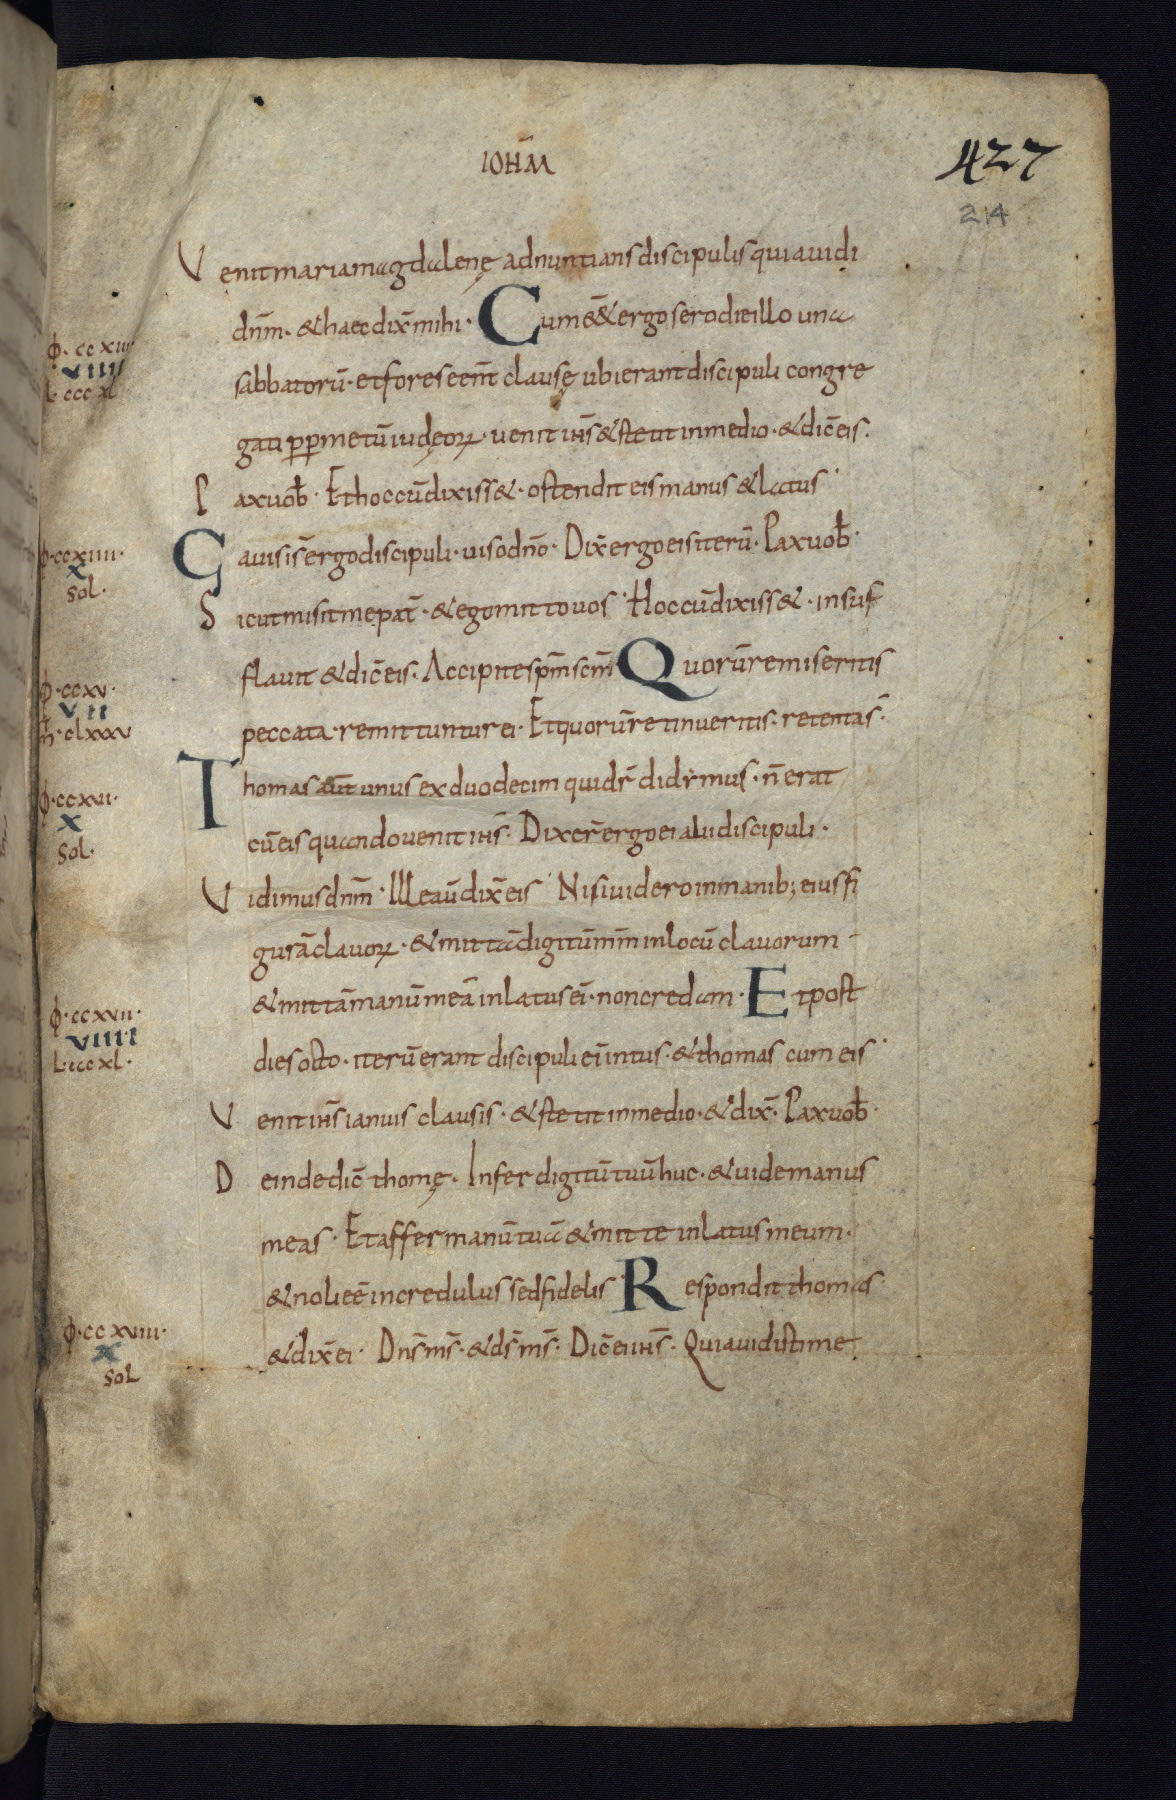 IOHM̄
427
214
Venit maria magdalenę adnuntians discipulis quia uidi
dn̄m · & haec dix̄ mihi · Cum ēē& ergo sero die illo una
sabbatorū · et fores eēnt clausę ubi erant discipuli congre
gati ꝓpmetū iudęoꝝ · uenit ih̄s & stetit in medio · & dic̄ eis.
Pax uob̄ · Et hoc cū dixiss& · ostendit eis manus & latus
Gauisi s̄ ergo discipuli · uiso dn̄o · Dix̄ ergo eis iterū · Pax uob̄ ·
Sicut misit me pat̄ · & ego mitto uos · Hoc cū dixiss& · insuf
flauit & dic̄ eis · Accipite sp̄m sc̄m Quorū remiseritis
peccata · remittuntur ei · Et quorū retinueritis · retenta s̄ ·
Thomas aut̄ unus ex duodecim qui dr̄ didymus · n̄ erat
cū eis quando uenit ih̄s · Dixer̄ ergo ei alii discipuli ·
Vidimus dn̄m · Ille aū dix̄ eis · Nisi uidero in manib; eius fi
gurā clauoꝝ · & mittā digitū m̄m in locū clauorum
& mittā manū meā in latus ei ̄ · non credam · Et post
dies octo · iterū erant discipuli ei ̄ intus · & thomas cum eis
Venit ih̄s ianuis clausis · & stetit in medio · & dix̄ · Pax uob̄ ·
Deinde dic̄ thomę · Infer digitū tuū huc · & uide manus
meas · Et affer manū tuā & mitte in latus meum ·
& noli eē incredulus sed fidelis · Respondit thomas
& dix̄ ei · Dn̄s m̄s · & d̄s m̄s · Dic̄ ei ih̄s · Quia uidisti me
ϕ · ccxiii
VIIII
L · cccxl
ϕ · ccxiiii ·
X
Sol ·
ϕ · ccxv ·
VII
m̄ · clxxxv
ϕ · ccxvi ·
X
Sol ·
ϕ · ccxvii ·
VIIII
L · cccxl ·
ϕ · ccxviii ·
X
Sol